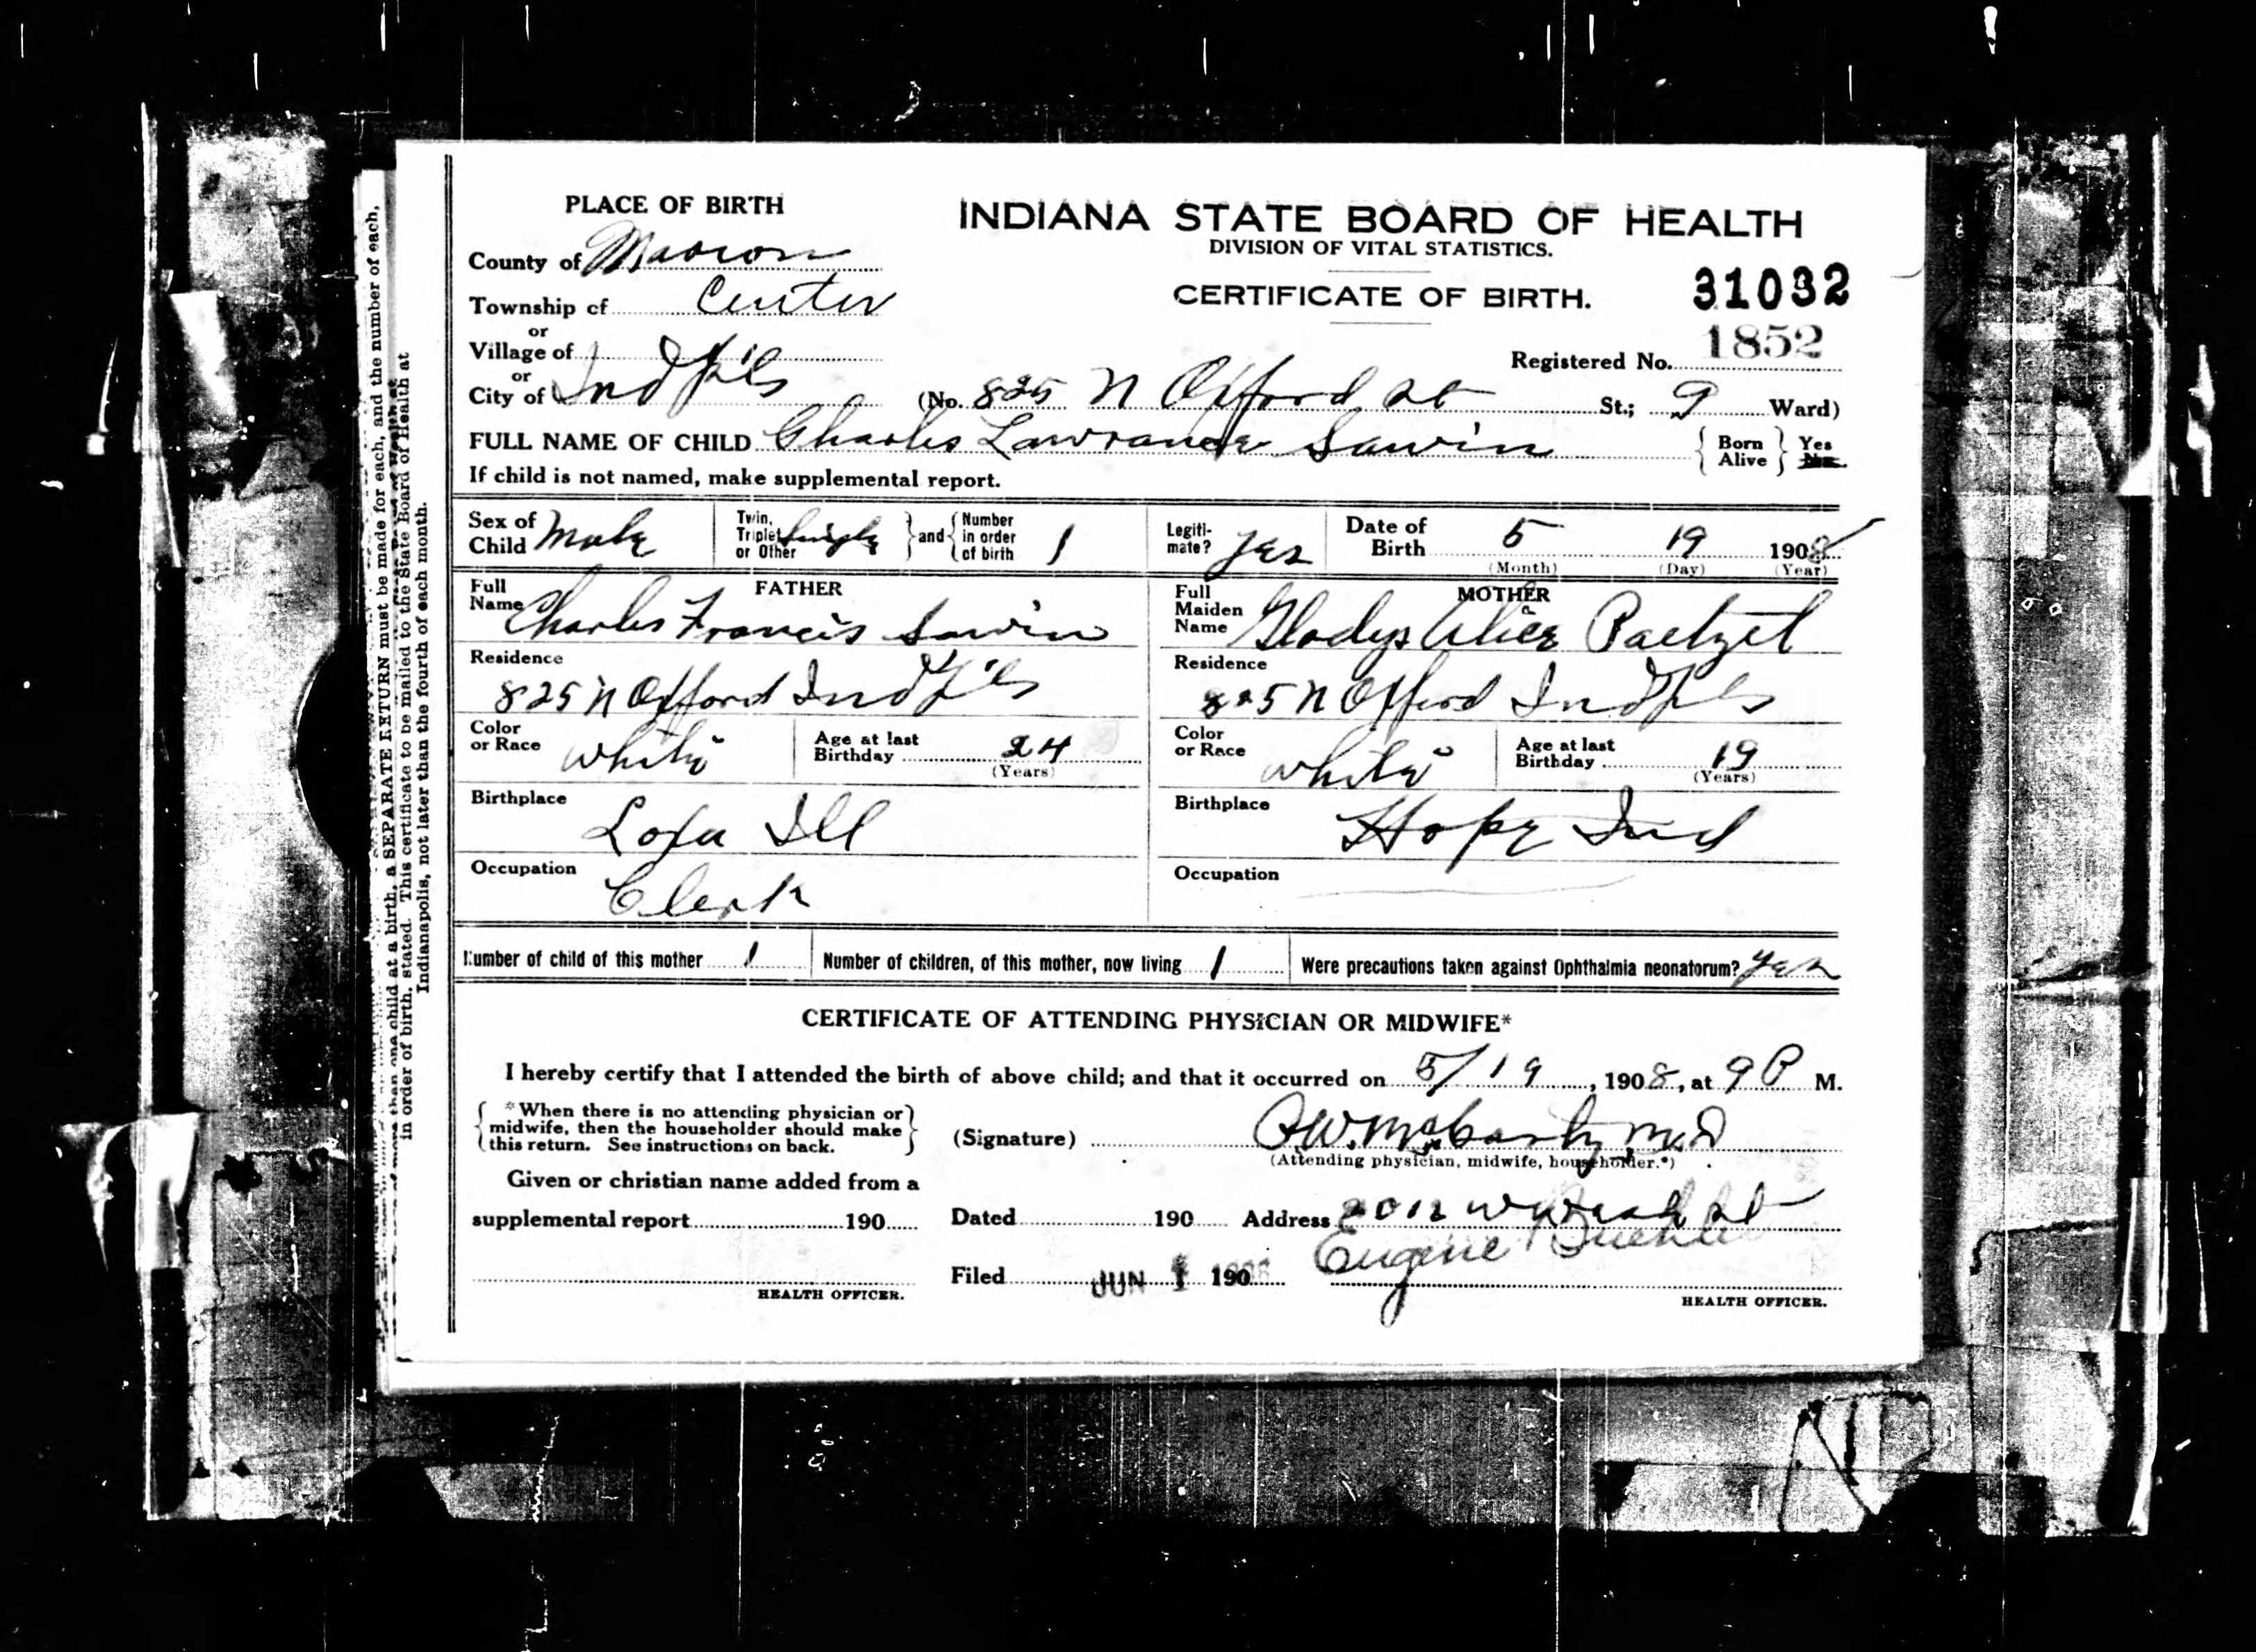 PLACE OF BIRTH
County of Marion
Township of Center
or
Village of
or
City of Indpls
INDIANA STATE BOARD OF HEALTH
DIVISION OF VITAL STATISTICS.
CERTIFICATE OF BIRTH.
31032
Registered No. 1852
(No. 825 N Oxford St St.; 9 Ward)
FULL NAME OF CHILD Charles Lawrance Sawin
{ Born Alive } Yes
If child is not named, make supplemental report.
Sex of Child Male
Twin, Triplet or Other single } and { Number in order of birth 1
Legiti-mate? Yes
Date of Birth 5 19 1908
(Month) (Day) (Year)
FATHER
Full Name Charles Francis Sawin
Residence
825 N Oxford Indpls
Color or Race white
Age at last Birthday 24
(Years)
Birthplace
Loxa Ill
Occupation
Clerk
MOTHER
Full Maiden Name Gladys Alice Paetzel
Residence
825 N Oxford Indpls
Color or Race white
Age at last Birthday 19
(Years)
Birthplace
Hope Ind
Occupation
Number of child of this mother 1
Number of children, of this mother, now living 1
Were precautions taken against Ophthalmia neonatorum? Yes
CERTIFICATE OF ATTENDING PHYSICIAN OR MIDWIFE*
I hereby certify that I attended the birth of above child; and that it occurred on 5/19, 1908, at 9 P M.
{ *When there is no attending physician or
midwife, then the householder should make
this return. See instructions on back. }
(Signature) McCarty M.D
(Attending physician, midwife, householder.*)
Given or christian name added from a
supplemental report 190
HEALTH OFFICER.
Dated 190 Address 2012 St
Filed JUN 1 1908 Eugene Buehler
HEALTH OFFICER.
than one child at a birth, a SEPARATE RETURN must be made for each, and the number of each,
in order of birth, stated. This certificate to be mailed to the State Board of Health at
Indianapolis, not later than the fourth of each month.